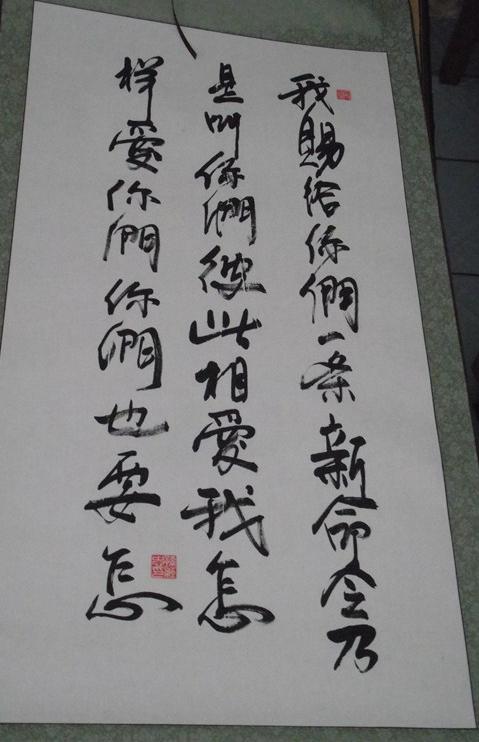 我賜給你們一条新命令乃
是叫你們彼此相愛我怎
样愛你們你們也要怎